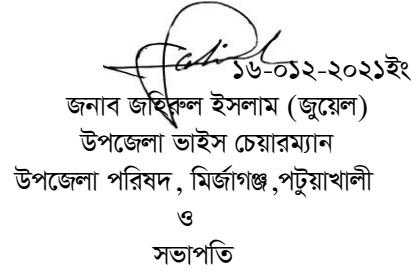 ১৬-০১২-২০২১ইং
জনাব জহিরুল ইসলাম (জুয়েল)
উপজেলা ভাইস চেয়ারম্যান
উপজেলা পরিষদ, মির্জাগঞ্জ,পটুয়াখালী
ও
সভাপতি